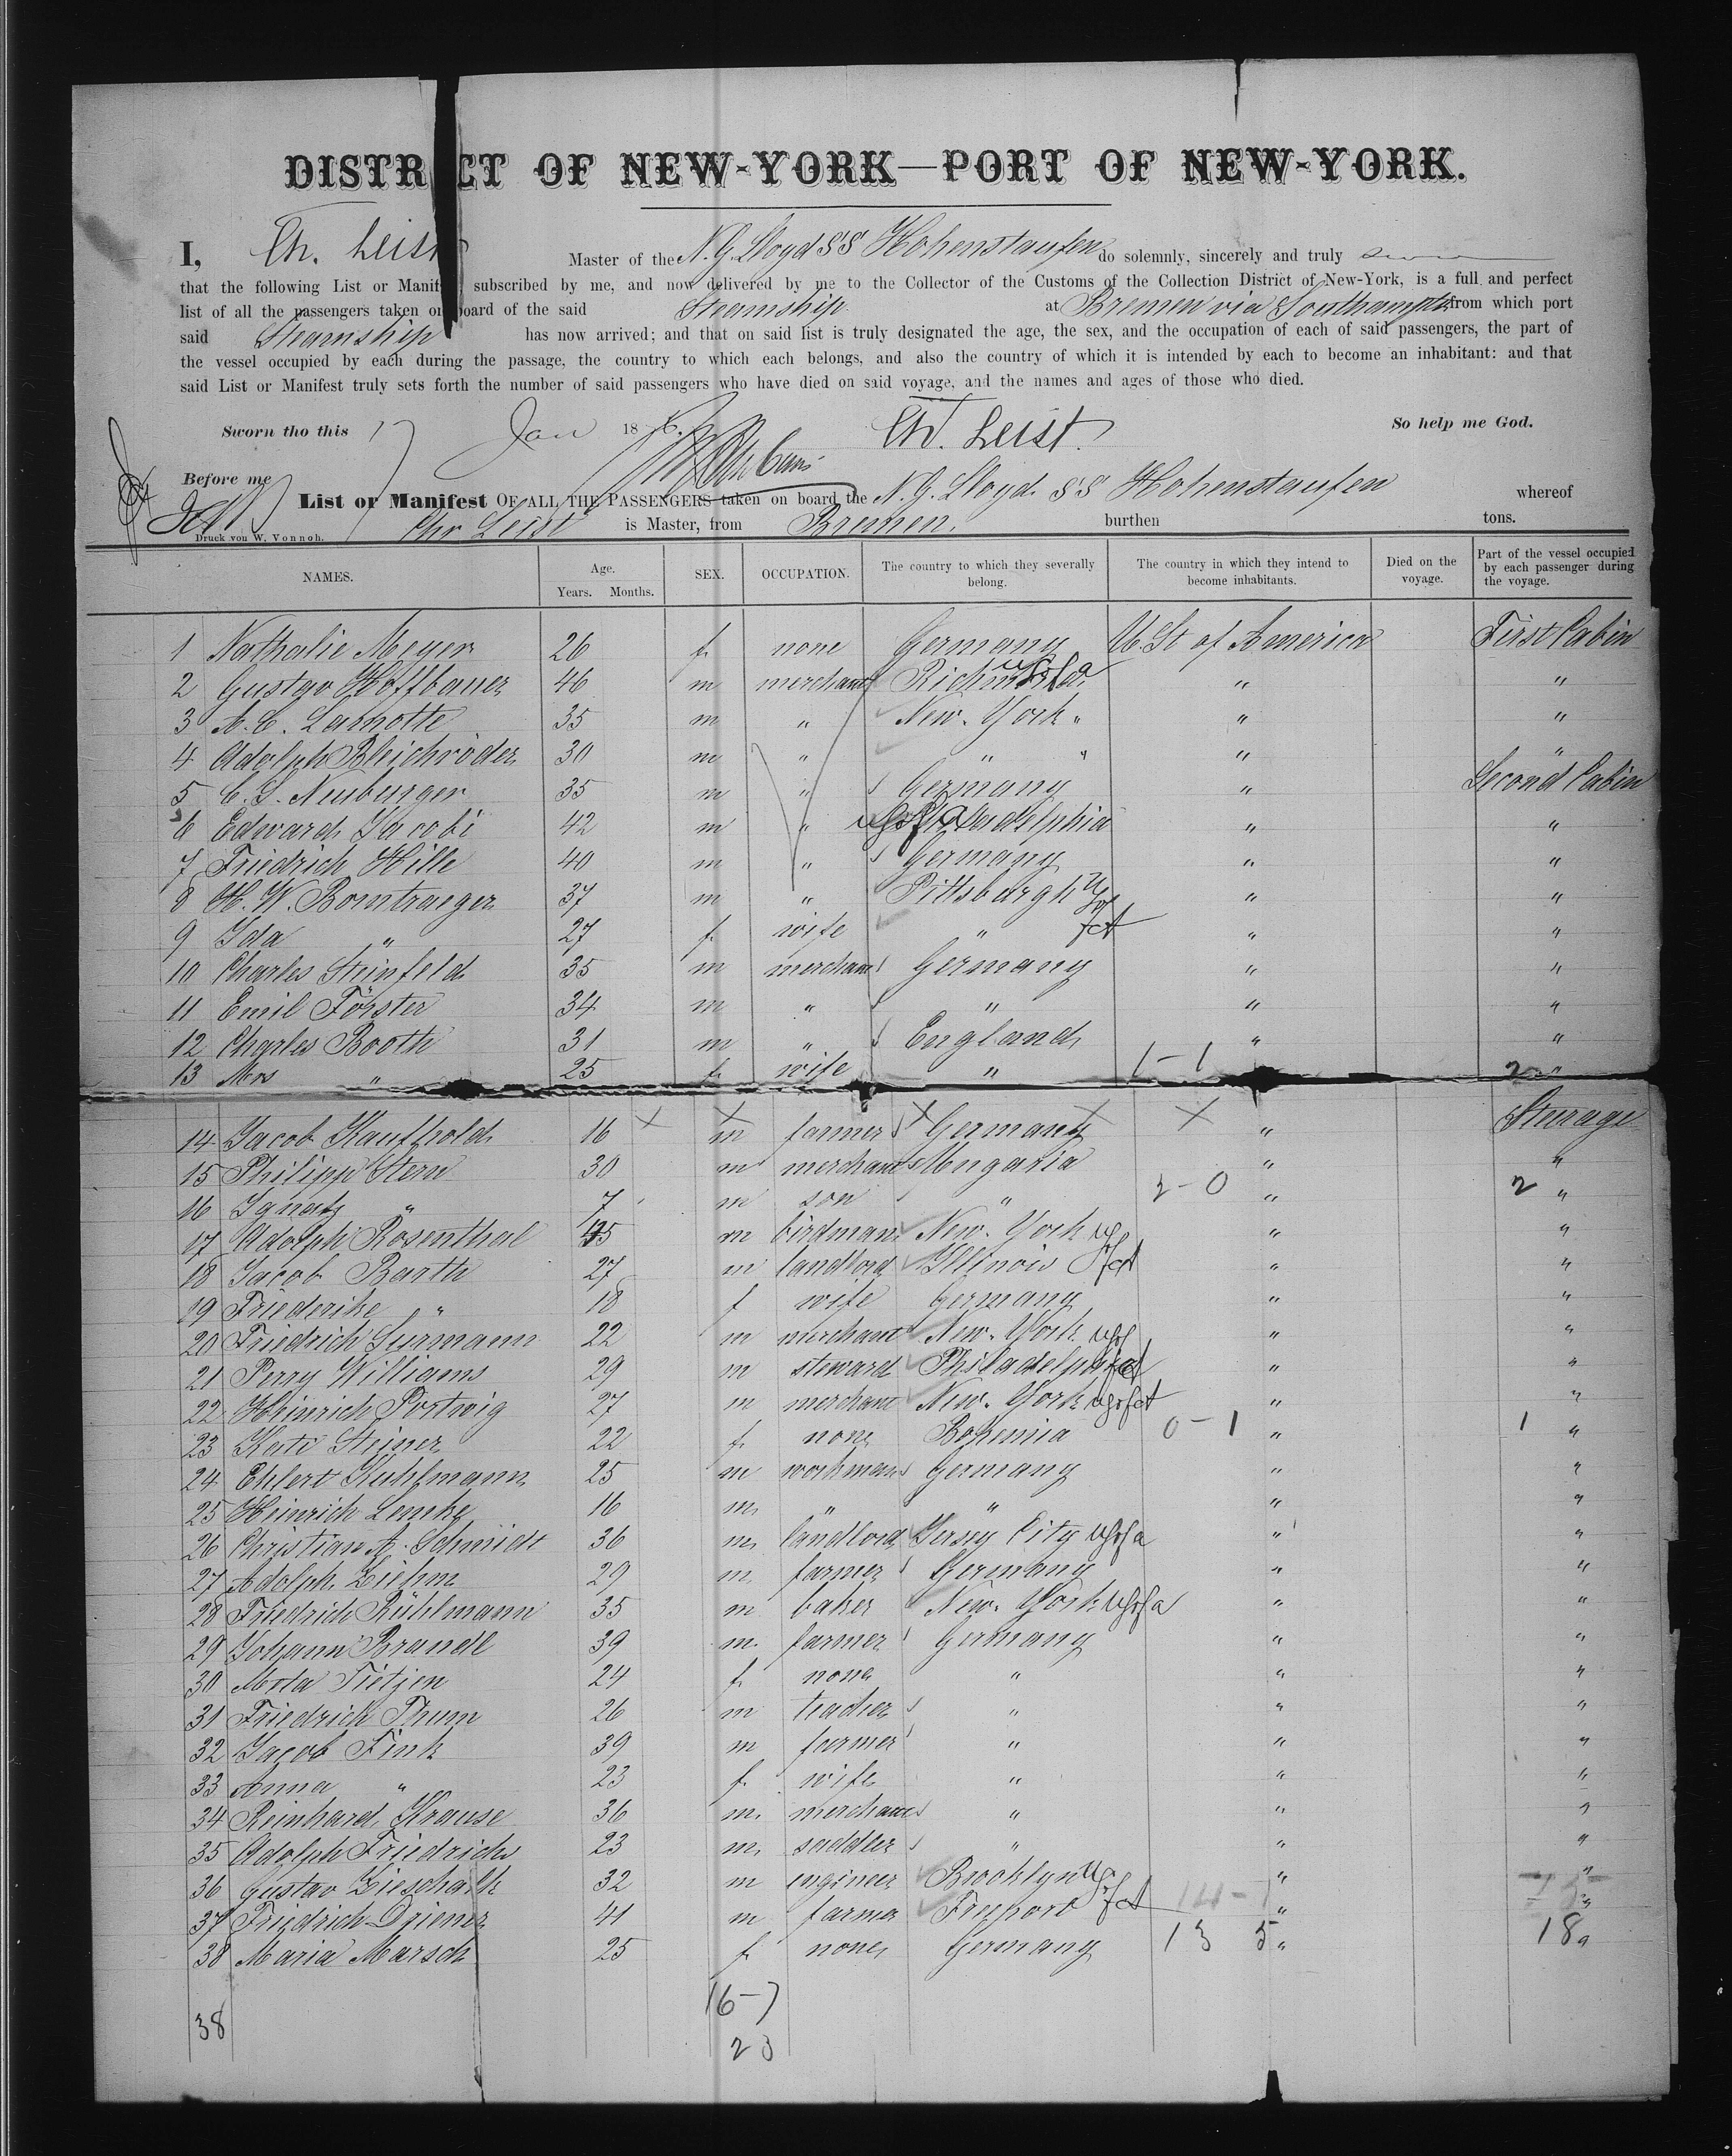 DISTRICT OF NEW-YORK—PORT OF NEW-YORK.
I, Ch. Leist Master of the N. G. Lloyd SS Hohenstaufen do solemnly, sincerely and truly
that the following List or Manifest subscribed by me, and now delivered by me to the Collector of the Customs of the Collection District of New-York, is a full and perfect
list of all the passengers taken on board of the said Steamship at Bremen via Southampton from which port
said Steamship has now arrived; and that on said list is truly designated the age, the sex, and the occupation of each of said passengers, the part of
the vessel occupied by each during the passage, the country to which each belongs, and also the country of which it is intended by each to become an inhabitant: and that
said List or Manifest truly sets forth the number of said passengers who have died on said voyage, and the names and ages of those who died.
Sworn tho this 17 Jan 1876. Ch. Leist. So help me God.
Before me
List or Manifest OF ALL THE PASSENGERS taken on board the N. G. Lloyd SS Hohenstaufen whereof
Chr Leist is Master, from Bremen. burthen tons.
Druck von W. Vonnoh.
NAMES. Age. Years. Months. SEX. OCCUPATION. The country to which they severally belong. The country in which they intend to become inhabitants. Died on the voyage. Part of the vessel occupied by each passenger during the voyage.
1 Nathalie Meyer 26 f. none Germany U. St of America First Cabin
2 Gustav Hoffbauer 46 m merchant Richmond " "
3 A. C. Lamotte 35 m " New-York " " "
4 Adolph Bleichröder 30 m " " " " "
5 C. S. Neuburger 35 m " Germany " Second Cabin
6 Edward Jacobi 42 m " Philadelphia " "
7 Friedrich Hille 40 m " Germany " "
8 H. W. Borntraeger 37 m " Pittsburgh " "
9 Ida " 27 f. wife " " "
10 Charles Steinfeld 35 m merchant Germany " "
11 Emil Förster 34 m " " " "
12 Charles Booth 31 m " England " "
13 Mrs " 25 f. wife " 1-1 2 "
14 Jacob Kaufhold 16 m farmer Germany " Sturage
15 Philipp Stern 30 m merchant Ungaria " "
16 Ignatz " 7 m son " 2-0 " 2 "
17 Adolph Rosenthal 45 m birdman New-York " "
18 Jacob Barth 27 m landlord Illinois " "
19 Friederike " 18 f wife Germany " "
20 Friedrich Surmann 22 m merchant New-York " "
21 Perry Williams 29 m steward Philadelphia " "
22 Heinrich Portwig 27 m merchant New-York " "
23 Kati Steiner 22 f. none Bohemia 0-1 " 1 "
24 Ehlert Kuhlmann 25 m workman Germany " "
25 Heinrich Lemke 16 m. " " " "
26 Christian A. Schmidt 36 m. landlord Jersey City " "
27 Adolph Ziehm 29 m. farmer Germany " "
28 Friedrich Rühlmann 35 m baker New-York " "
29 Johann Brandt 39 m. farmer Germany " "
30 Meta Tietjen 24 f. none " " "
31 Friedrich Thum 26 m teacher " " "
32 Jacob Fink 39 m farmer " " "
33 Anna " 23 f. wife " " "
34 Reinhard Krause 36 m. merchant " " "
35 Adolph Friedrichs 23 m. saddler " " "
36 Gustav Zieschalk 32 m engineer Brooklyn " "
37 Friedrich Driener 41 m farmer Freeport " "
38 Maria Marsch 25 f. none Germany 13 5 " 18 "
16-7
38
23